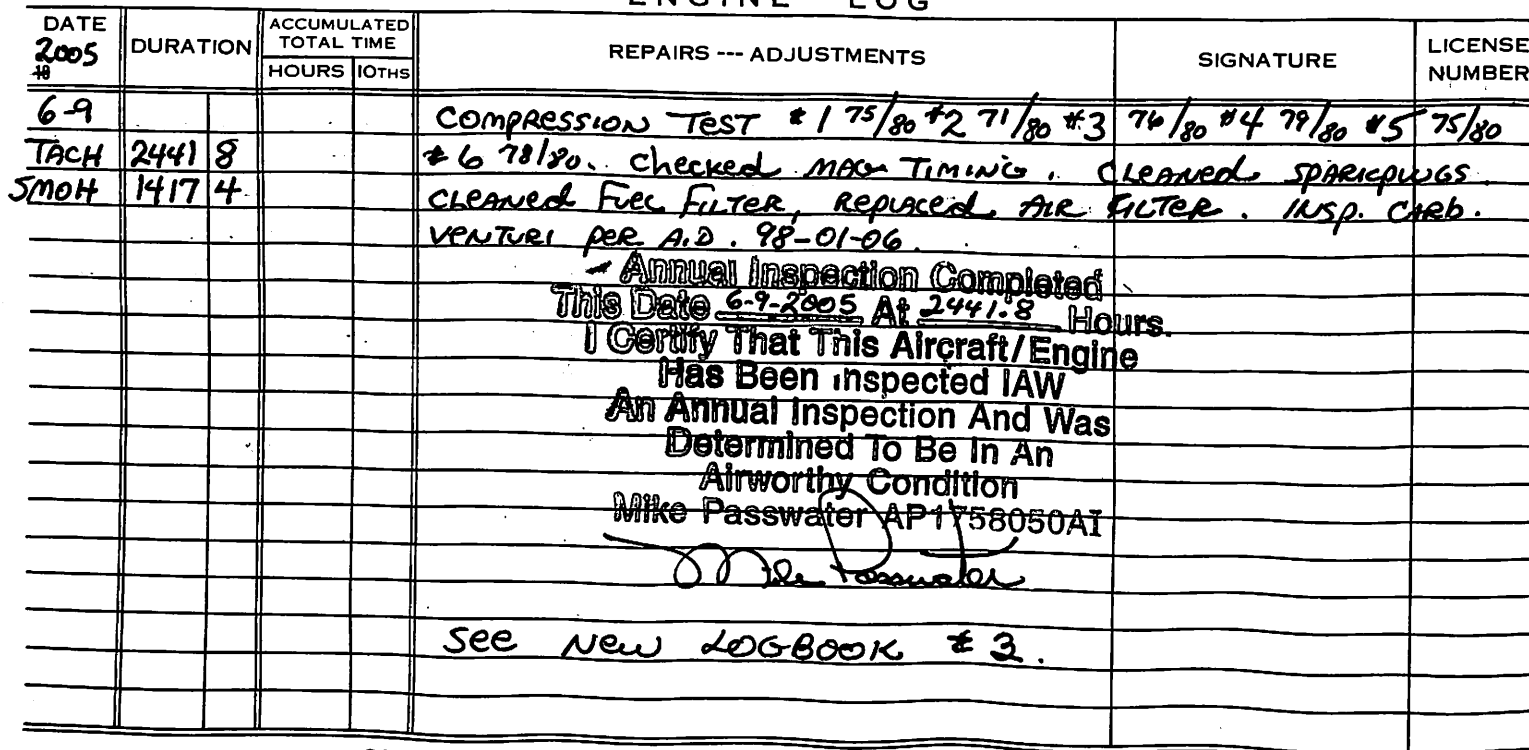 ENGINE LOG
DATE 2005 DURATION ACCUMULATED TOTAL TIME HOURS 10THS REPAIRS --- ADJUSTMENTS SIGNATURE LICENSE NUMBER
6-9 COMPRESSION TEST #1 75/80 #2 71/80 #3 76/80 #4 79/80 #5 75/80
TACH 2441 8 #6 78/80. Checked MAG TIMING. CLEANED SPARKPLUGS.
SMOH 1417 4 CLEANED FUEL FILTER, REPLACED AIR FILTER. INSP. CARB.
VENTURI PER A.D. 98-01-06.
Annual Inspection Completed
This Date 6-9-2005 At 2441.8 Hours.
I Certify That This Aircraft/Engine
Has Been Inspected IAW
An Annual Inspection And Was
Determined To Be In An
Airworthy Condition
Mike Passwater AP1758050AI
Mike Passwater
See New LOGBOOK #3.